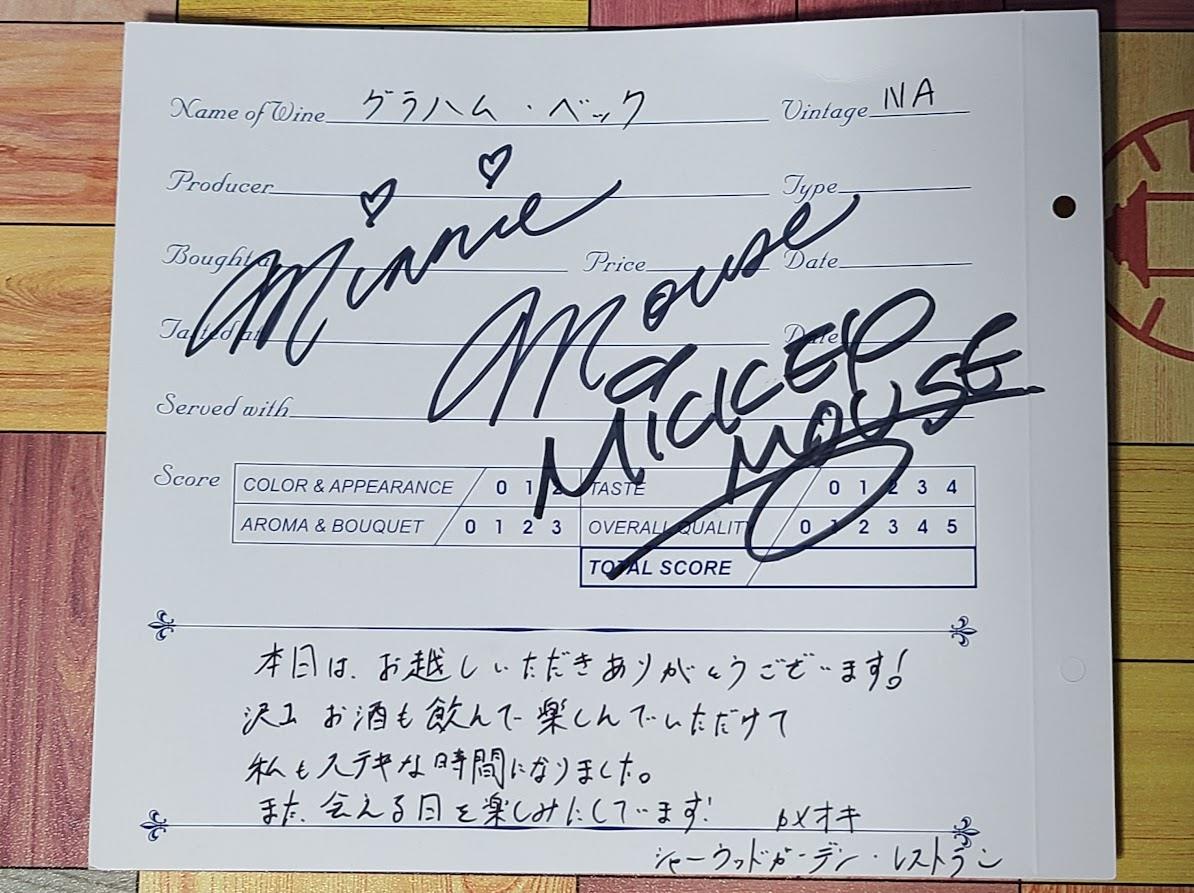 Name of Wine グラハム・ベック Vintage NA
Producer Type
Bought at Price Date
Tasted at Date
Served with
Minnie Mouse
&
MICKEY MOUSE
Score COLOR & APPEARANCE 0 1 2 TASTE 0 1 2 3 4
AROMA & BOUQUET 0 1 2 3 OVERALL QUALITY 0 1 2 3 4 5
TOTAL SCORE
本日は、お越しいただきありがとうございます!
沢山 お酒も飲んで楽しんでいただけて
私もステキな時間になりました。
また、会える日を楽しみにしています! カメオキ
シャーウッドガーデン・レストラン